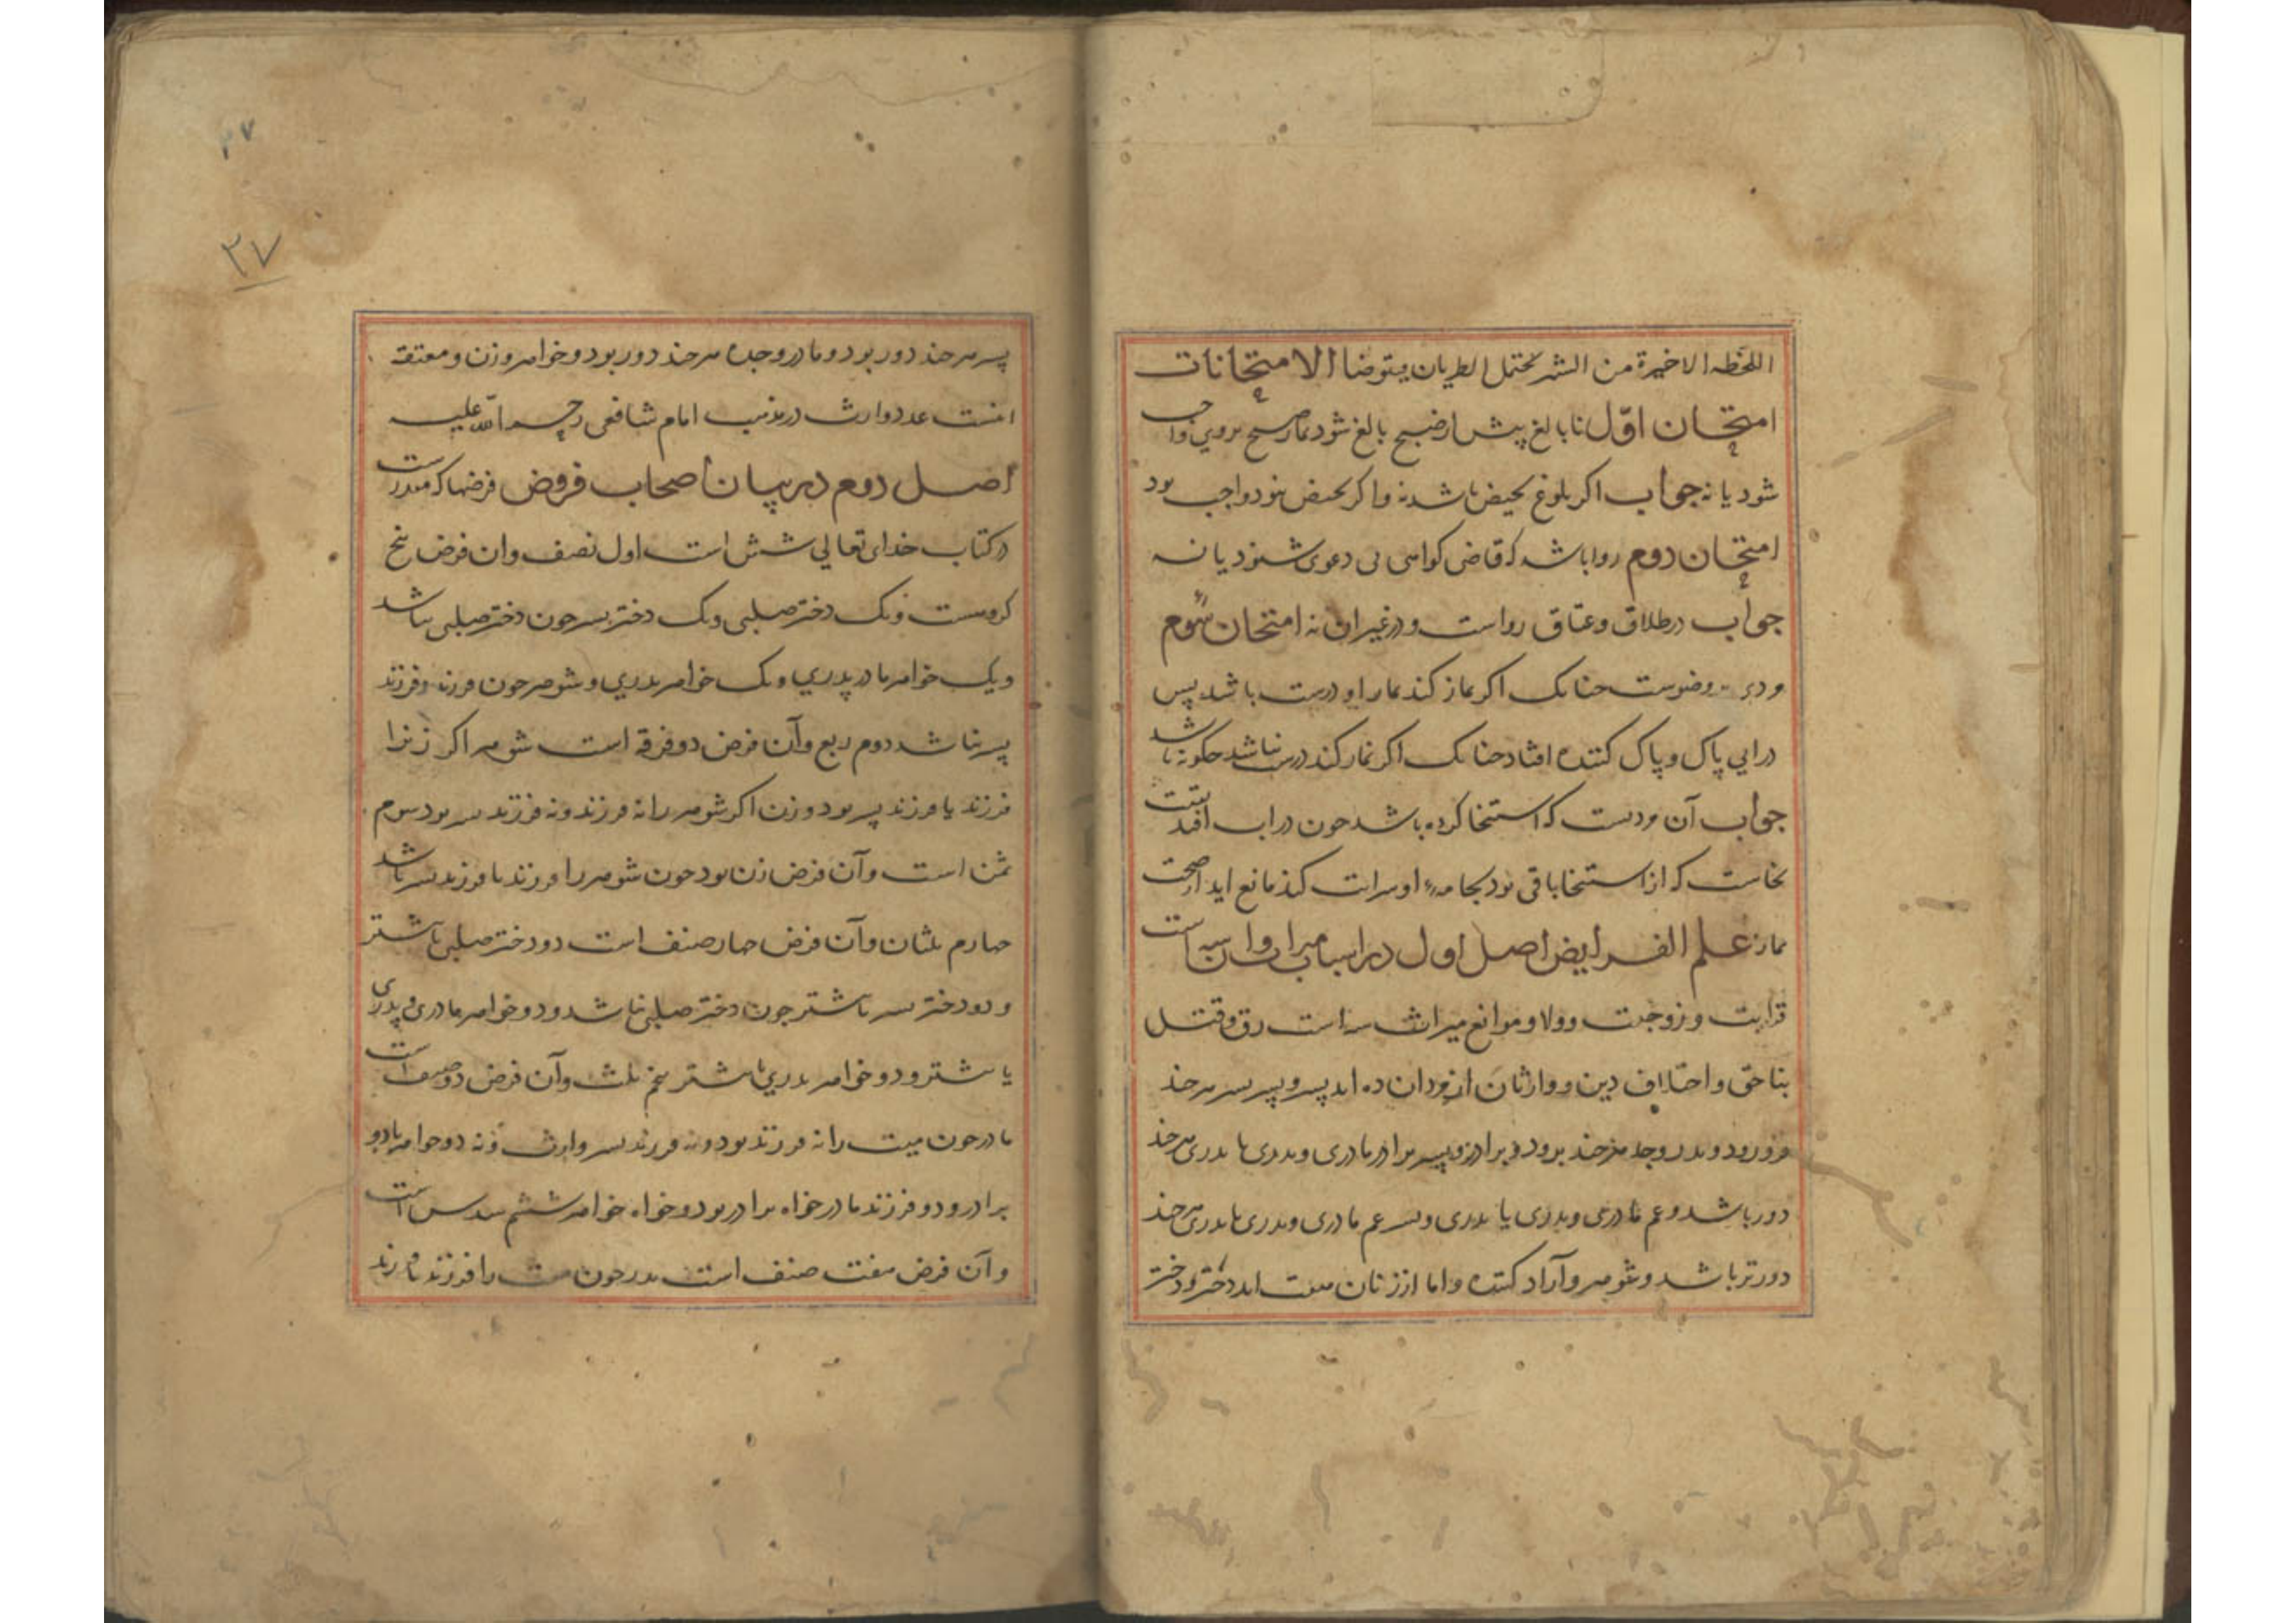 اللحظه الاخیرة من الشهر تحتمل الطریان یتوضا الامتحانات
امتحان اوّل نا بالغ پیش از صبح بالغ شود نماز صبح بروی واجب
شود یا نه جواب اکر بلوغ بحیض باشد نه واکر بحیض نبود واجب بود
امتحان دوم روا باشد که قاضی کواهی بی دعوی شنود یا نه
جواب در طلاق وعتاق رواست ودر غیر ان نه امتحان سوم
مردی وضوست جنانک اکر نماز کند نماز او درست باشد پس
در ابی پاک وپاک کننده افتاد جنانک اکر نماز کند درست نباشد جکونه باشد
جواب آن مردست که استنجا کرده باشد جون در اب افتد
نجاست که از استنجا باقی بود بجامهٔ او سرایت کند مانع اید از صحت
نماز علم الفرایض اصل اول در اسباب میراث وان سه است
قرابت وزوجیت وولا وموانع میراث سه است رق وقتل
بناحق واختلاف دین ووارثان از مردان ده اند پسر وپسر پسر هرجند
فرو رود وپدر وجد هرجند برود وبرادر وپسر برادر مادری وپدری یا پدری هرجند
دور باشد وعم مادری وپدری یا پدری وپسر عم مادری وپدری یا پدری هرجند
دورتر باشد وشوهر وآزاد کننده واما از زنان هفت اند دختر ودختر
پسر هرجند دور بود ومادر وجده هرجند دور بود وخواهر وزن ومعتقه
اینست عدد وارث در مذهب امام شافعی رحمه الله علیه
اصل دوم در بیان اصحاب فروض فرضها که مقدرست
در کتاب خدای تعالی شش است اول نصف وان فرض پنج
کروهست یک دختر صلبی ویک دختر پسر جون دختر صلبی نباشد
ویک خواهر مادر پدری ویک خواهر پدری وشوهر جون فرزند وفرزند
پسر نباشد دوم ربع وآن فرض دو فرقه است شوهر اکر زنرا
فرزند یا فرزند پسر بود وزن اکر شوهر را نه فرزند ونه فرزند پسر بود سوم
ثمن است وآن فرض زن بود جون شوهر را فرزند یا فرزند پسر باشد
جهارم ثلثان وآن فرض جهار صنف است دو دختر صلبی یا بیشتر
ودو دختر پسر یا بیشتر جون دختر صلبی نباشد ودو خواهر مادری وپدری
یا بیشتر ودو خواهر پدری یا بیشتر پنجم ثلث وآن فرض دو صنف است
مادر جون میت را نه فرزند بود ونه فرزند پسر وارث ونه دو خواهر یا دو
برادر ودو فرزند مادر خواه برادر بود وخواه خواهر ششم سدس است
وآن فرض هفت صنف است پدر جون میت را فرزند یا فرزند
۲۷
۲۷